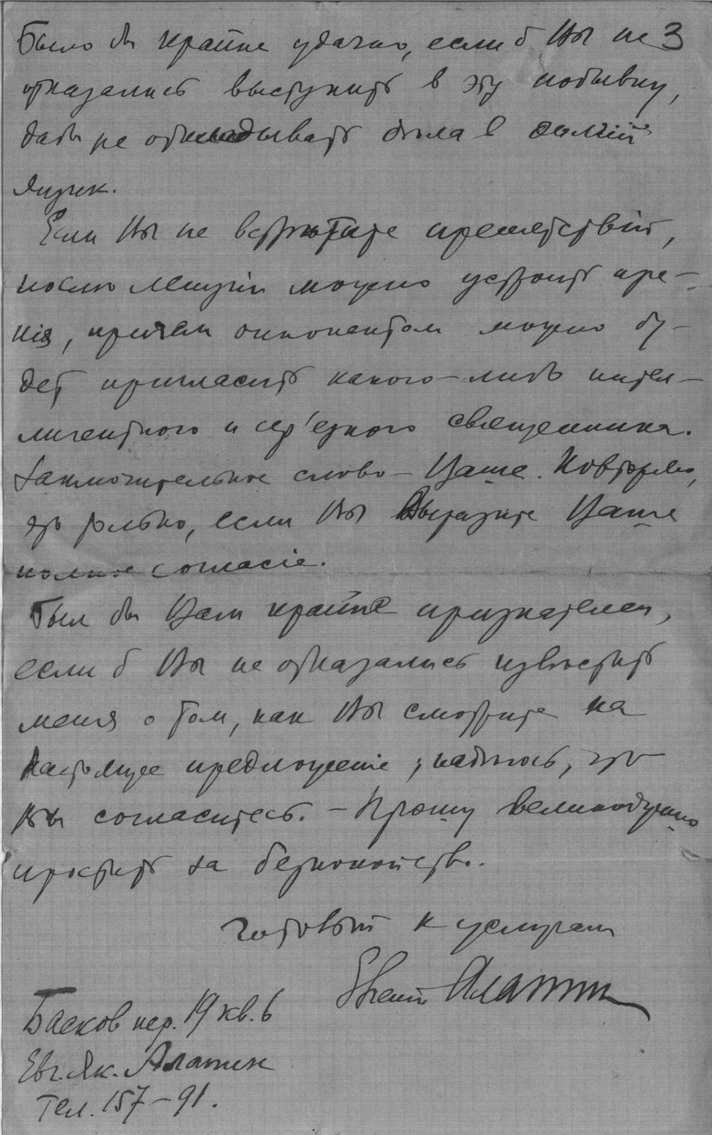 Было бы крайне удачно, если б Вы не 3
отказались выступить в эту побывку,
дабы не откладывать дѣла в долгій
ящик.
Если Вы не встрѣтите препятствій,
послѣ лекціи можно устроить пре-
нія, причем оппонентом можно бу-
дет пригласить какого-либо интел-
лигентного и сер'езного священника.
Заключительное слово — Ваше. Повторяю,
это только, если Вы выразите Ваше
полное согласіе.
Был бы Вам крайне признателен,
если б Вы не отказались извѣстить
меня о том, как Вы смотрите на
настоящее предложеніе; надѣюсь, что
Вы согласитесь. — Прошу великодушно
простить за безпокойство.
Готовый к услугам
Евгений
Басков пер. 19 кв. 6
Евг. Як.
Тел. 157-91.